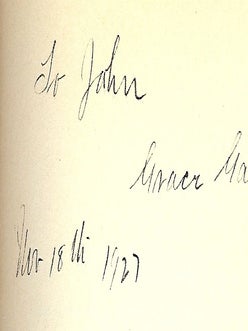 To John
Grace Ga
Nov 18th 1927